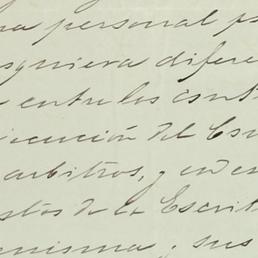 na personal pa
squiera difere
entre los cont
ejecución del Con
arbitros, y en en
stos de la Escrit
misma, sus